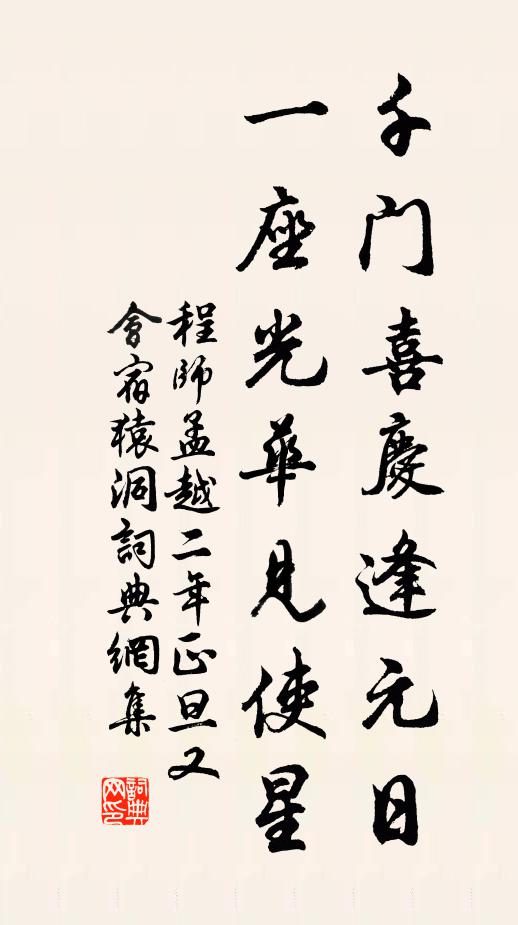 千門喜慶逢元日
一座光華見使星
程師孟越二年正旦又
會宿猿洞詞典網集
詞典
网印